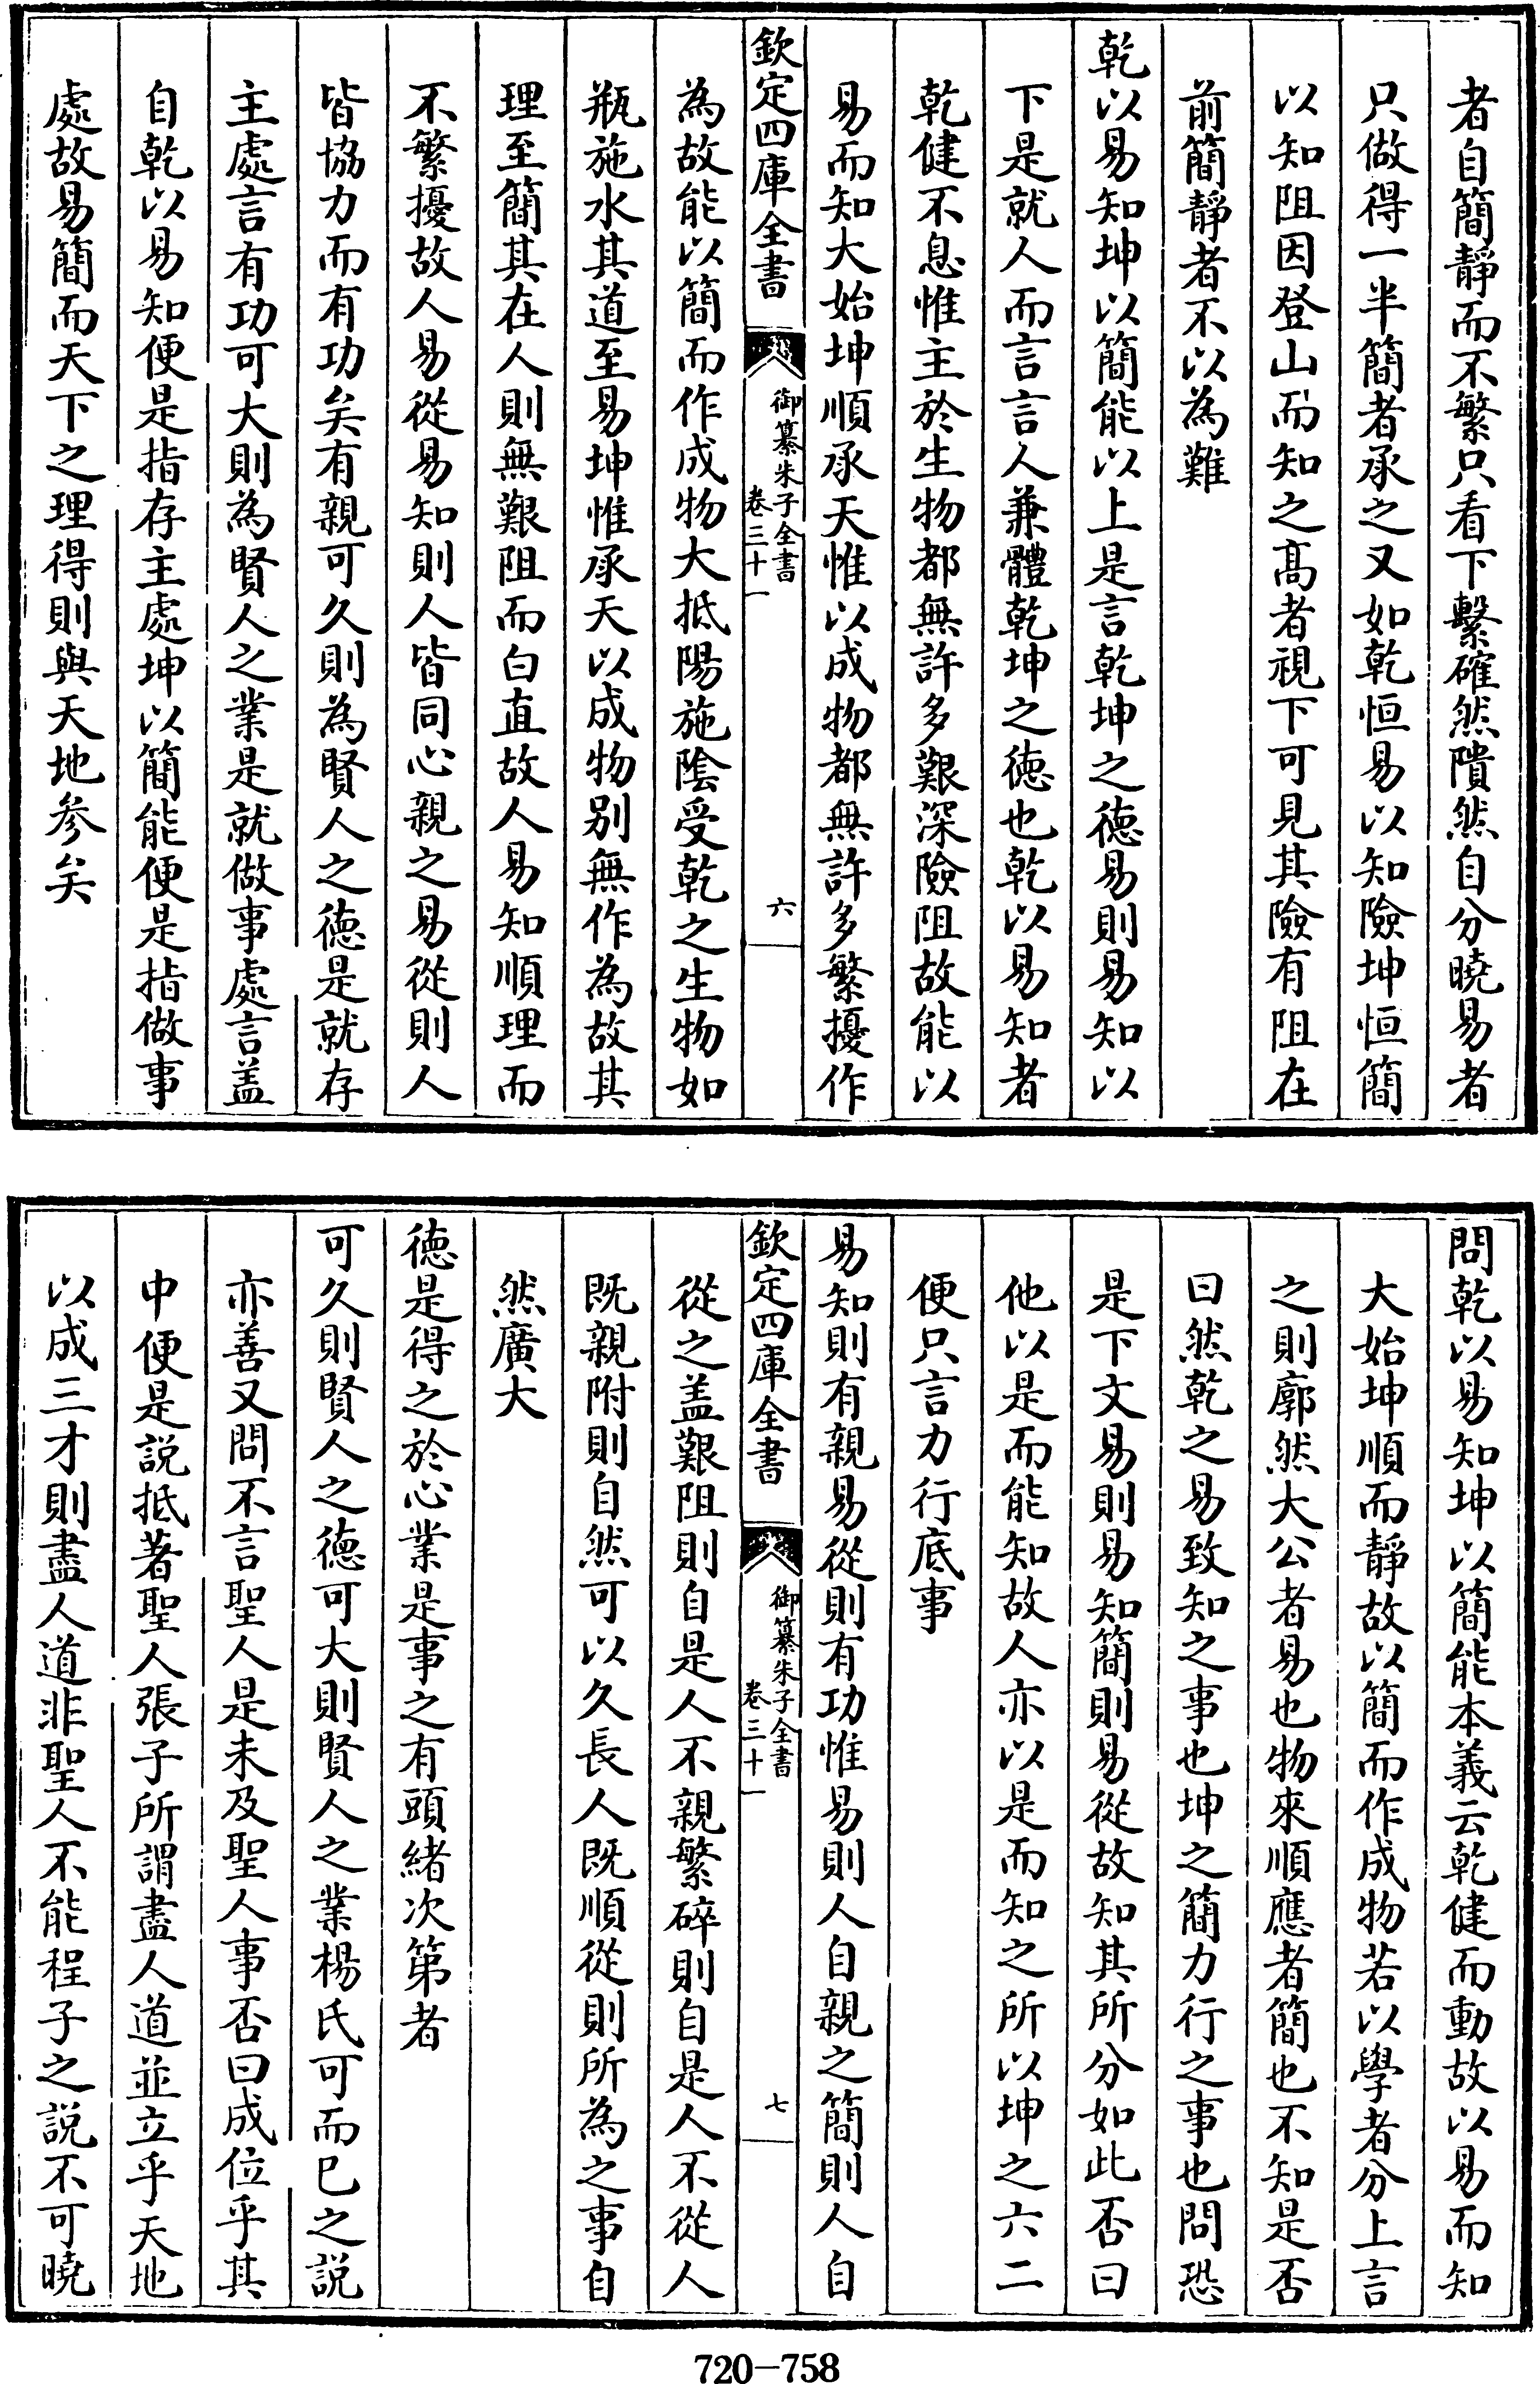 者自簡靜而不繁只看下繫確然隤然自分曉易者
只做得一半簡者承之又如乾恒易以知險坤恒簡
以知阻因登山而知之高者視下可見其險有阻在
前簡靜者不以為難
乾以易知坤以簡能以上是言乾坤之德易則易知以
下是就人而言言人兼體乾坤之德也乾以易知者
乾健不息惟主於生物都無許多艱深險阻故能以
易而知大始坤順承天惟以成物都無許多繁擾作
欽定四庫全書
御纂朱子全書
卷三十一
六
為故能以簡而作成物大抵陽施陰受乾之生物如
瓶施水其道至易坤惟承天以成物別無作為故其
理至簡其在人則無艱阻而白直故人易知順理而
不繁擾故人易從易知則人皆同心親之易從則人
皆協力而有功矣有親可久則為賢人之德是就存
主處言有功可大則為賢人之業是就做事處言蓋
自乾以易知便是指存主處坤以簡能便是指做事
處故易簡而天下之理得則與天地參矣
問乾以易知坤以簡能本義云乾健而動故以易而知
大始坤順而靜故以簡而作成物若以學者分上言
之則廓然大公者易也物來順應者簡也不知是否
曰然乾之易致知之事也坤之簡力行之事也問恐
是下文易則易知簡則易從故知其所分如此否曰
他以是而能知故人亦以是而知之所以坤之六二
便只言力行底事
易知則有親易從則有功惟易則人自親之簡則人自
欽定四庫全書
御纂朱子全書
卷三十一
七
從之蓋艱阻則自是人不親繁碎則自是人不從人
既親附則自然可以久長人既順從則所為之事自
然廣大
德是得之於心業是事之有頭緒次第者
可久則賢人之德可大則賢人之業楊氏可而已之說
亦善又問不言聖人是未及聖人事否曰成位乎其
中便是說抵著聖人張子所謂盡人道並立乎天地
以成三才則盡人道非聖人不能程子之說不可曉
720-758